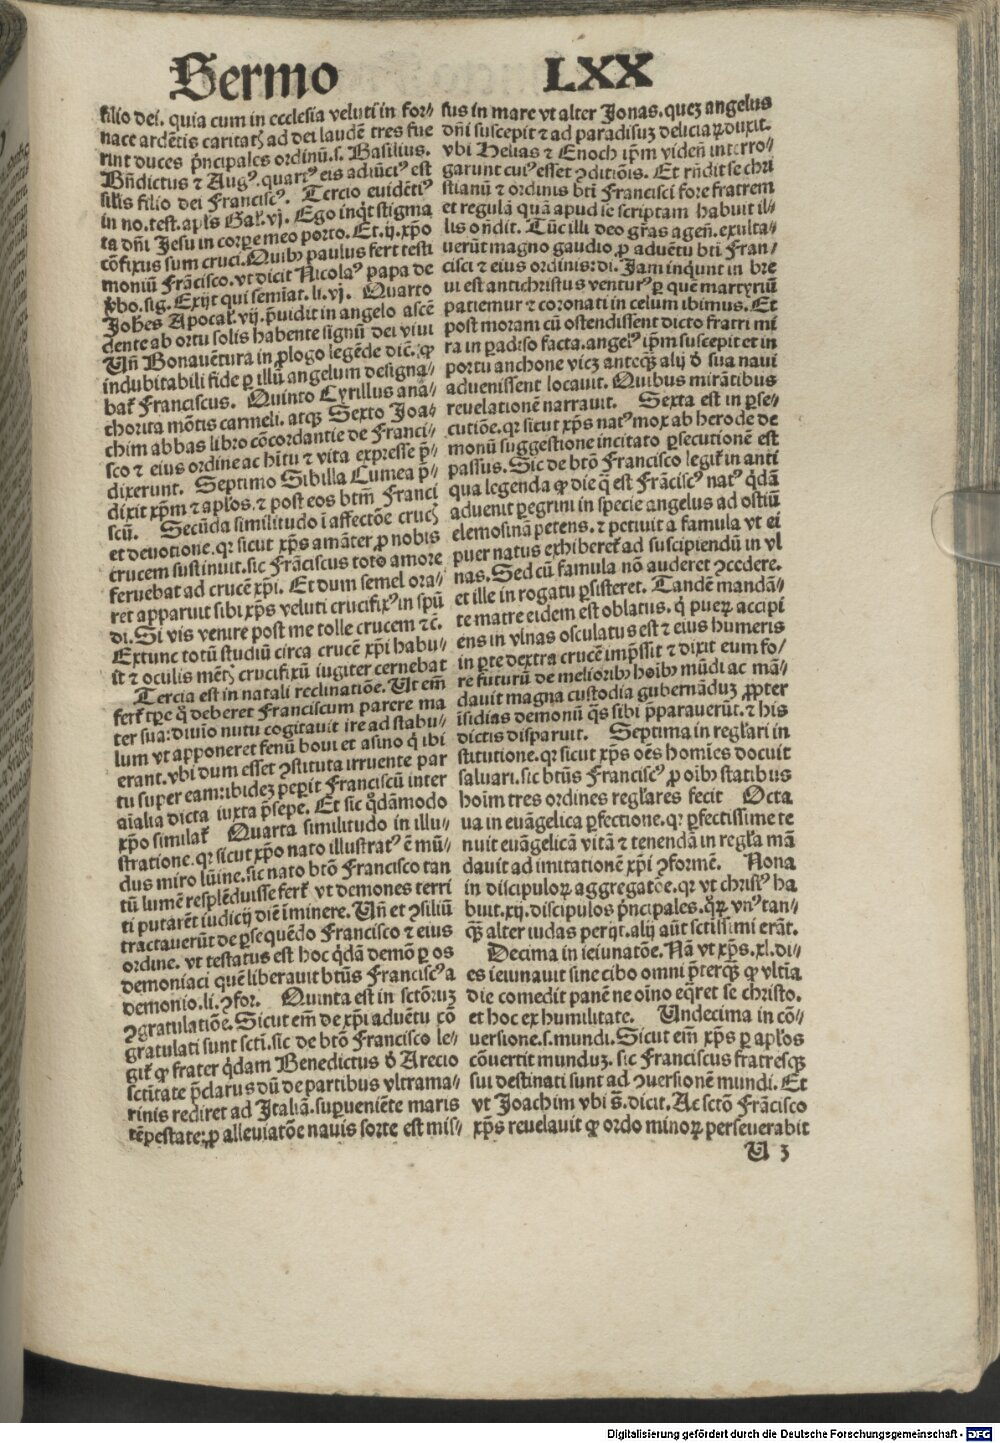 Sermo LXX
filio dei. quia cum in ecclesia veluti in for⸗
nace ardētis caritatꝭ ad dei laudē tres fue
rint duces p̄ncipales ordinū. s. Basilius.
Bn̄dictus ⁊ Augꝰ. quarꝰ eis adiūctꝰ est
silis filio dei Franciscꝰ. Tercio euidētiꝰ
in no. test. apl's Gal'. vj. Ego inq̇t stigma
ta dn̄i Jesu in corꝑe meo porto. Et. ij. xp̄o
cōfixus sum cruci. Quibꝫ paulus fert testi
moniū Frācisco. vt dicit Nicolaꝰ papa de
v̄bo. sig. Exijt qui semīat. li. vj. Quarto
Joh̄es Apocal'. vij. p̄uidit in angelo ascē
dente ab ortu solis habente signū dei viui
Un̄ Bonauētura in ꝓlogo legēde dic̄. ꝙ
indubitabili fide ꝑ illū angelum designa⸗
bat᷑ Franciscus. Quinto Cyrillus ana⸗
chorita mōtis carmeli. atqꝫ Sexto Joa⸗
chim abbas libro cōcordantie de Franci⸗
sco ⁊ eius ordine ac h̄itu ⁊ vita expresse p̄⸗
dixerunt. Septimo Sibilla Cumea p̄⸗
dixit xp̄m ⁊ apl'os. ⁊ post eos btm̄ Franci
scū. Secūda similitudo ī affectōe crucꝭ
et deuotione. qꝛ sicut xp̄s amāter ꝓ nobis
crucem sustinuit. sic Frāciscus toto amore
feruebat ad crucē xp̄i. Et dum semel ora⸗
ret apparuit sibi xp̄s veluti crucifixꝰ in spū
di. Si vis venire post me tolle crucem ⁊c̄.
Extunc totū studiū circa crucē xp̄i habu⸗
it ⁊ oculis mētꝭ crucifixū iugiter cernebat
Tercia est in natali reclinatiōe. Ut em̄
fert᷑ tꝑe q̇ deberet Franciscum parere ma
ter sua: diuīo nutu cogitauit ire ad stabu⸗
lum vt apponeret fenū boui et asino q̇ ibi
erant. vbi dum esset ꝯstituta irruente par
tu super eam: ibideꝫ peꝑit Franciscū inter
aīalia dicta iuxta p̄sepe. Et sic q̇dāmodo
xp̄o similat᷑ Quarta similitudo in illu⸗
stratione. qꝛ sicut xp̄o nato illustratꝰ ē mū⸗
dus miro lūine. sic nato btō Francisco tan
tū lumē resplēduisse fert᷑ vt demones terri
ti putarēt iudicij diē īminere. Un̄ et ꝯsiliū
tractauerūt de ꝑsequēdo Francisco ⁊ eius
ordine. vt testatus est hoc q̇dā demō ꝑ os
demoniaci quē liberauit btūs Franciscꝰ a
demonio. li. ꝯfor. Quinta est in sctōruꝫ
ꝯgratulatiōe. Sicut em̄ de xp̄i aduētu cō
gratulati sunt sctī. sic de btō Francisco le⸗
git᷑ ꝙ frater q̇dam Benedictus d̄ Arecio
sctītate p̄clarus dū de partibus vltrama⸗
rinis rediret ad Italiā. superueniēte maris
tēpestate: ꝓ alleuiatōe nauis sorte est mis⸗
sus in mare vt alter Jonas. queꝫ angelus
dn̄i suscepit ⁊ ad paradisuꝫ deliciaꝝ duxit.
vbi Helias ⁊ Enoch ip̄m viden̄ interro⸗
garunt cuiꝰ esset ꝯditiōis. Et rn̄dit se chri
stianū ⁊ ordinis btī Francisci fore fratrem
et regulā quā apud se scriptam habuit il⸗
lis on̄dit. Tūc illi deo gr̄as agen̄. exulta⸗
uerūt magno gaudio ꝓ aduētu btī Fran⸗
cisci ⁊ eius ordinis: di. Jam inq̇unt in bre
ui est antichristus venturꝰ ꝑ quē martyriū
patiemur ⁊ coronati in celum ibimus. Et
post moram cū ostendissent dicto fratri mi
ra in ꝑadiso facta. angelꝰ ip̄m suscepit et in
portu anchone viceꝫ anteqꝫ alij d̄ sua naui
aduenissent locauit. Quibus mirātibus
reuelationē narrauit. Sexta est in ꝑse⸗
cutiōe. qꝛ sicut xp̄s natꝰ mox ab herode de
monū suggestione incitato ꝑsecutionē est
passus. Sic de btō Francisco legit᷑ in anti
qua legenda ꝙ die q̄ est Frāciscꝰ natꝰ q̇dā
aduenit ꝑegrini in specie angelus ad ostiū
elemosinā petens. ⁊ petiuit a famula vt ei
puer natus exhiberet᷑ ad suscipiendū in vl
nas. Sed cū famula nō auderet ꝯcedere.
et ille in rogatu ꝑsisteret. Tandē mandā⸗
te matre eidem est oblatus. q̇ pueꝝ accipi
ens in vlnas osculatus est ⁊ eius humeris
in ꝑte dextra crucē imp̄ssit ⁊ dixit eum fo⸗
re futurū de melioribꝫ hoībꝫ mūdi ac mā⸗
dauit magna custodia gubernāduꝫ ꝓpter
īsidias demoniū q̄s sibi p̄parauerūt. ⁊ his
dictis disparuit. Septima in regl'ari in
stitutione. qꝛ sicut xp̄s oēs homīes docuit
saluari. sic btūs Franciscꝰ ꝓ oībꝫ statibus
hoīm tres ordines regl'ares fecit Octa
ua in euāgelica ꝑfectione. qꝛ ꝑfectissime te
nuit euāgelicā vitā ⁊ tenendā in regl'a mā
dauit ad imitationē xp̄i ꝯformē. Nona
in discipuloꝝ aggregatōe. qꝛ vt christꝰ ha
buit. xij. discipulos p̄ncipales. qͦꝝ vnꝰ tan⸗
qꝫ alter iudas perijt. alij aūt sctīssimi erāt.
Decima in ieiunatōe. Nā vt xp̄s. xl. di⸗
es ieiunauit sine cibo omni p̄terqꝫ ꝙ vltīa
die comedit panē ne oīno eq̄ret se christo.
et hoc ex humilitate. Undecima in cō⸗
uersione. s. mundi. Sicut em̄ xp̄s ꝑ apl'os
cōuertit munduꝫ. sic Franciscus fratresqꝫ
sui destinati sunt ad ꝯuersionē mundi. Et
vt Joachim vbi s̄. dicit. Ac sctō Frācisco
xp̄s reuelauit ꝙ ordo minoꝝ perseuerabit
U 3
Digitalisierung gefördert durch die Deutsche Forschungsgemeinschaft - DFG